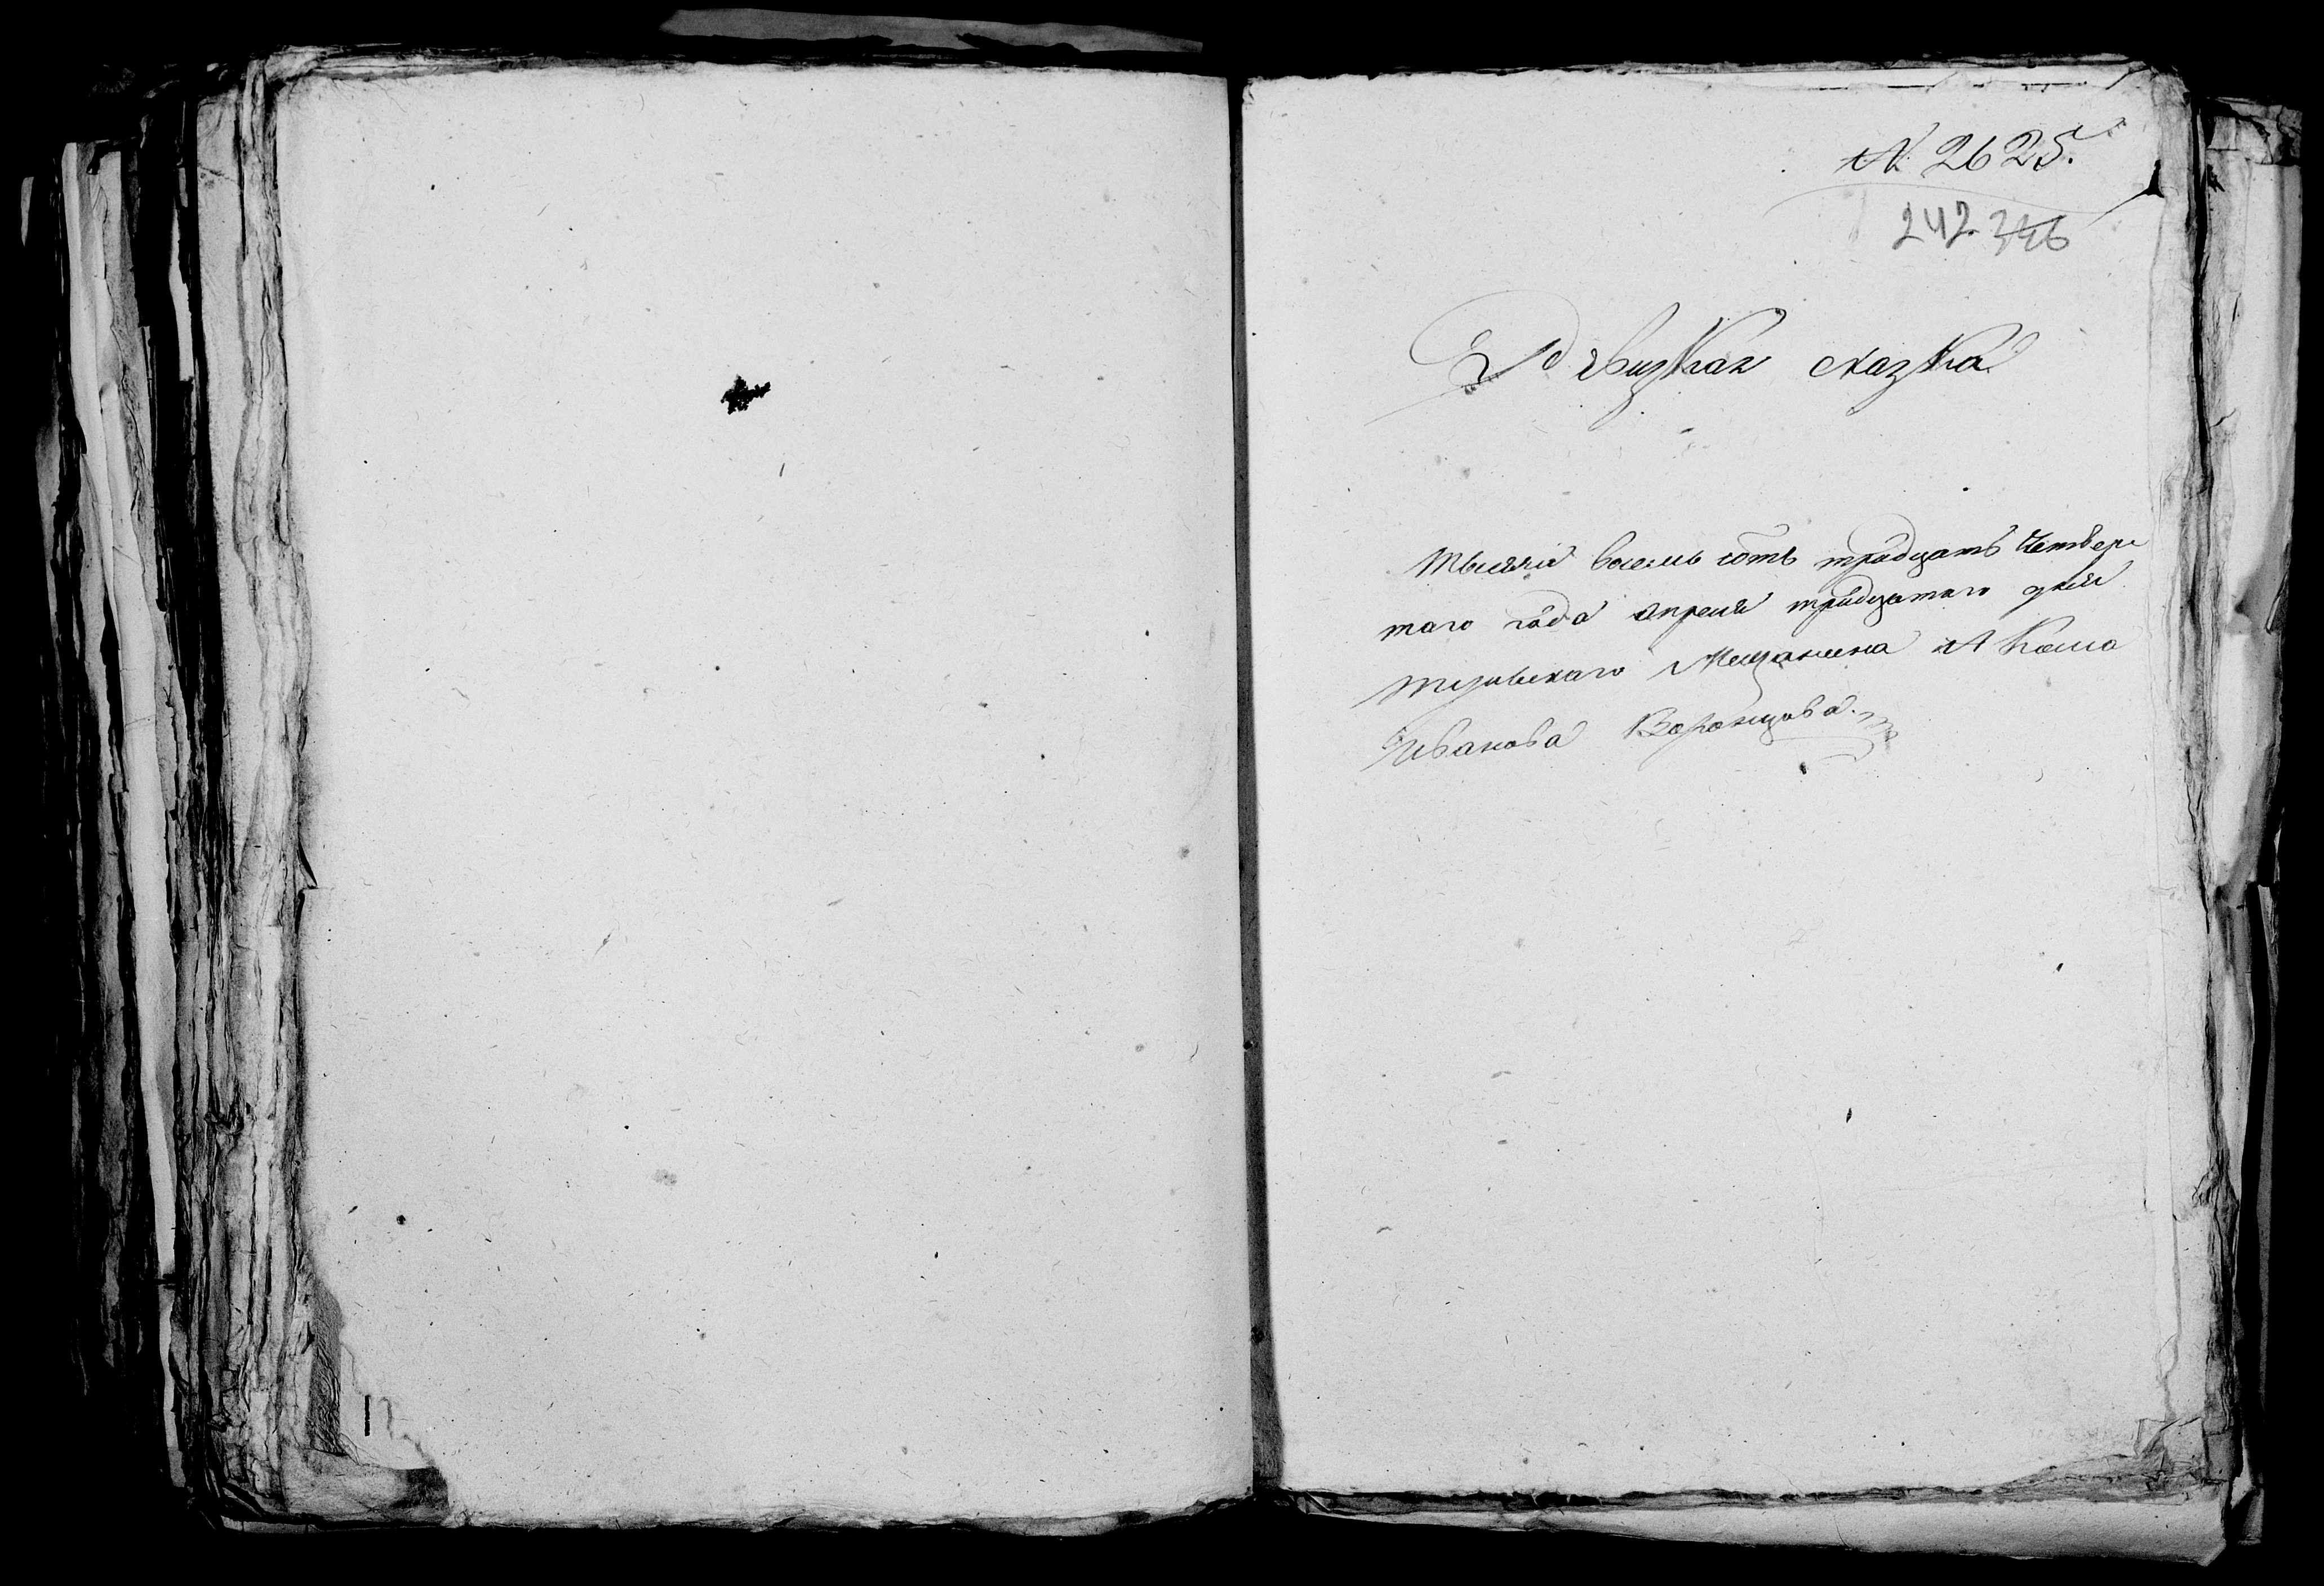 № 2625.
242. 346
Ревизкая сказка
Тысяча восемь сотъ тридцать Четвер
таго года апреля тридцатаго дня
Мещанина Акима
Иванова Воронцова.